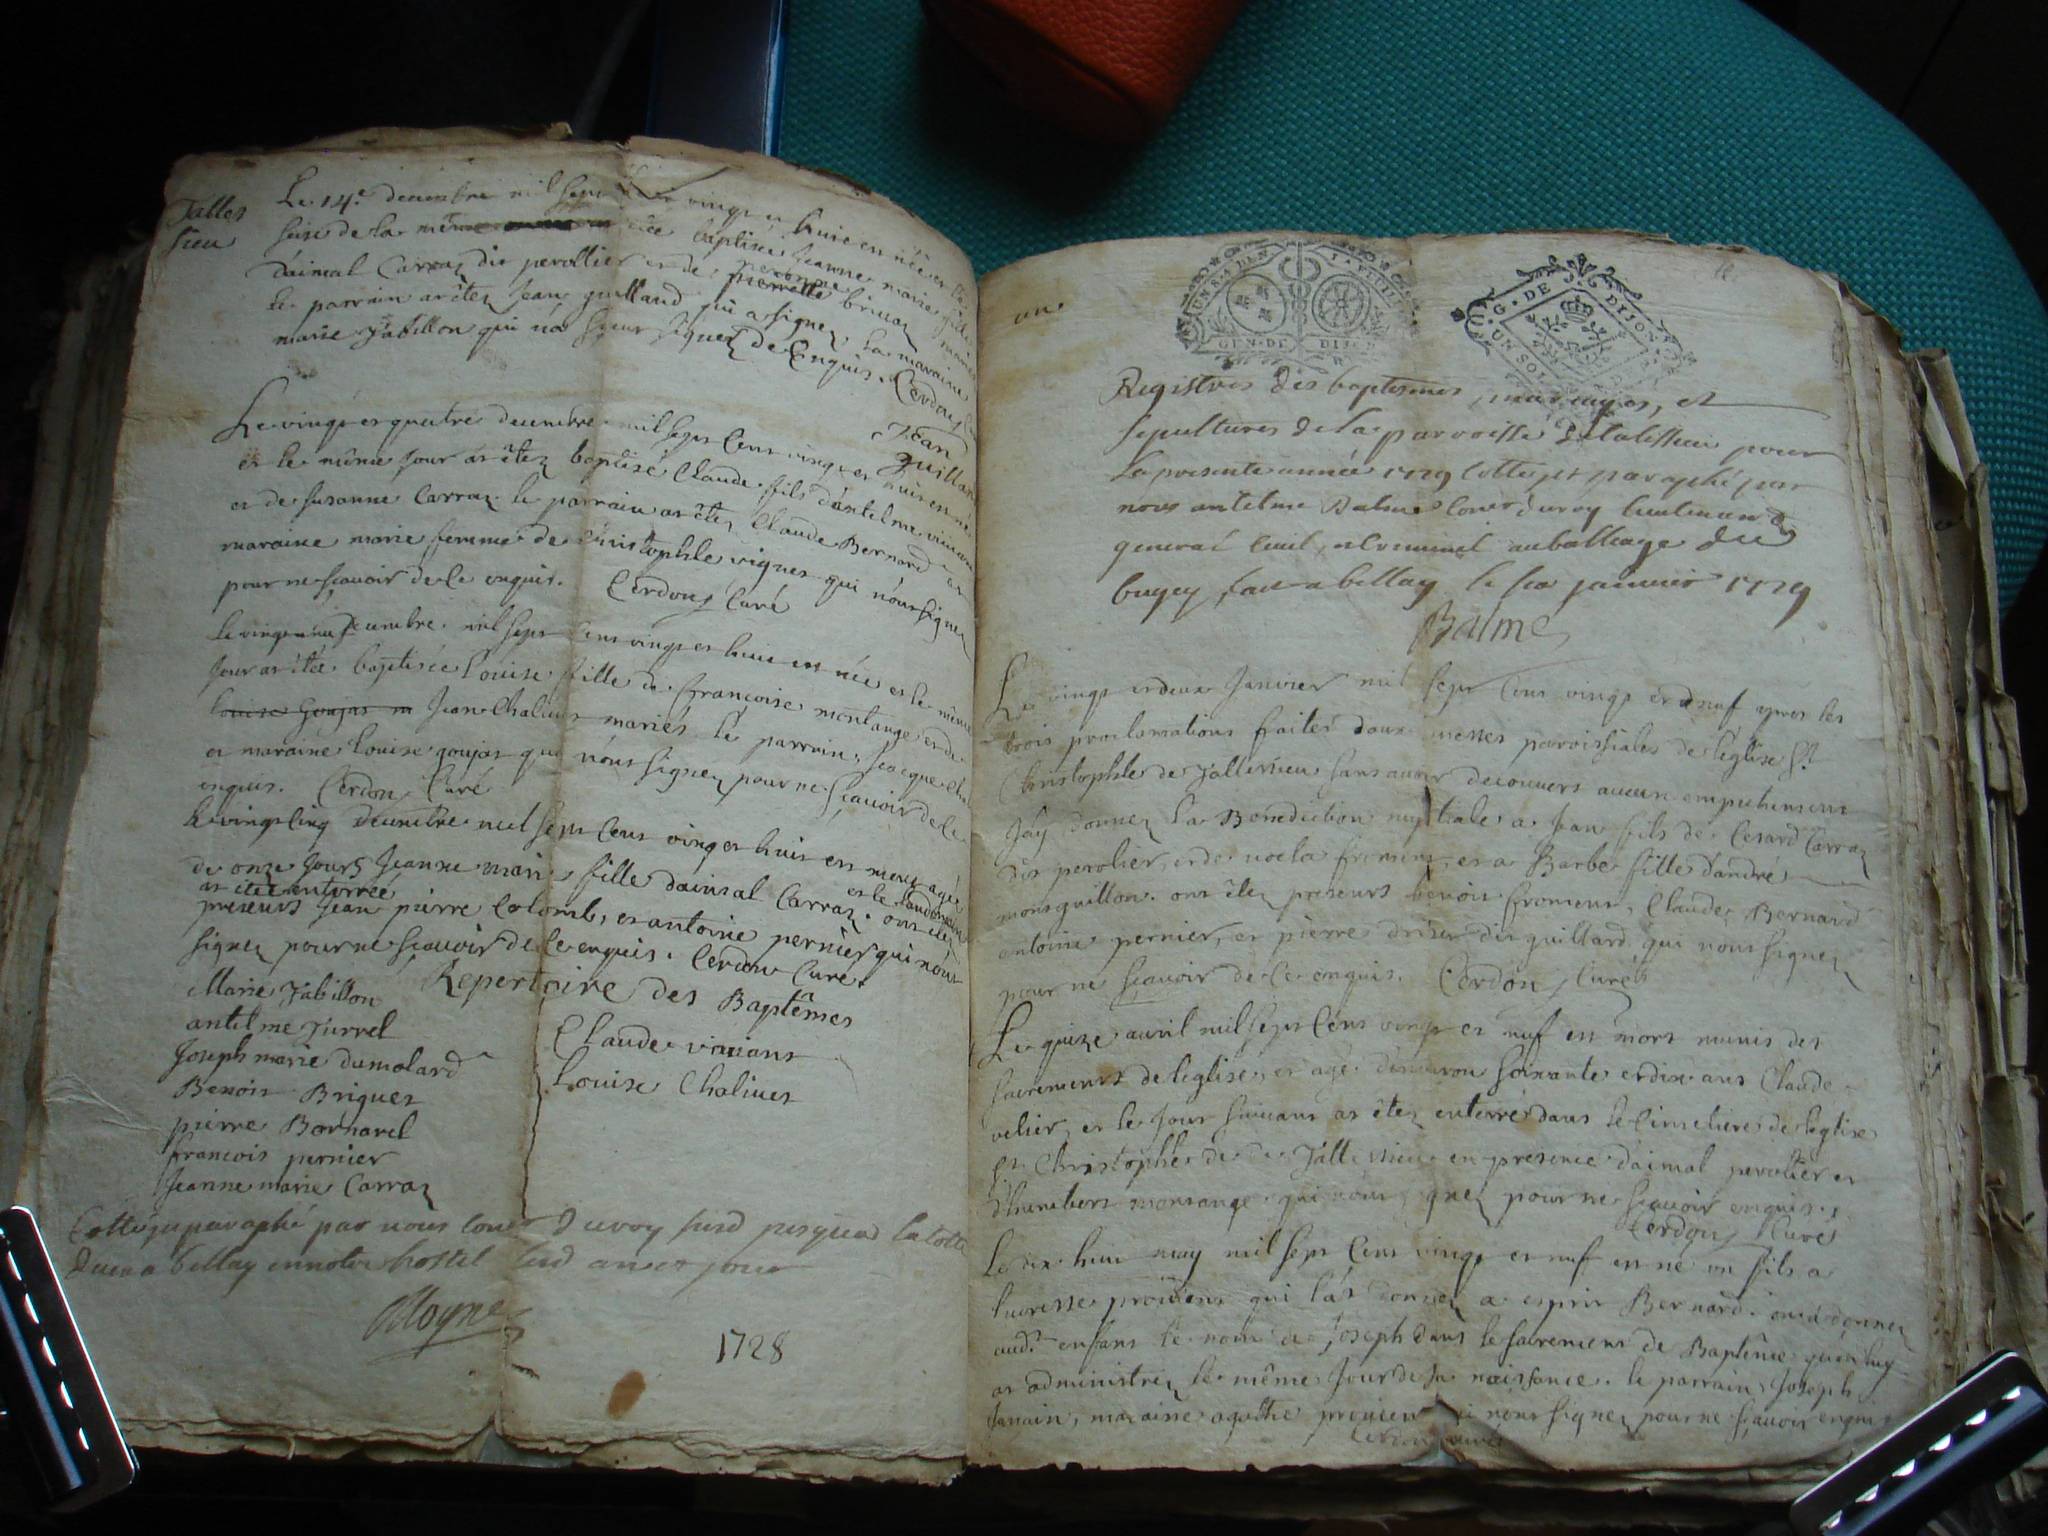 Talles
sieu
Le 14e decembre mil sept cent vingt et huit est née et
de la même baptisée Jeanne marie fille
daimal Carraz dit perollier et de pierrette brucaz mariés
le parrain at êtez Jean guilland qui a signez la maraine
marie Jabillon qui na sçeu signer de ce enquis. Cerdon
Jean
guilland
Le vingt et quatre decembre mil sept cent vingt et huit est né
et le même jour at êtez baptisé Claude fils d'antelme vivians
et de susanne Carraz. le parrain at êtez Claude Bernard et
maraine marie femme de Christophle vignes qui n'ont signez
pour ne sçavoir de ce enquis. Cerdon, Curé
le vingt neuf decembre mil sept cent vingt et huit est née et le même
jour at étée baptisée Louise fille de francoise montange et de
louise goujat Jean Chalives mariés le parrain, Jacque
et maraine Louise goujat qui n'ont signez pour ne sçavoir de ce
enquis. Cerdon, Curé
le vingt cinq decembre mil sept cent vingt et huit est morte agée
de onze jours Jeanne marie fille daimal Carraz. et le landemain
at étée enterrée
presents Jean pierre Colomb, et antoine pernier qui n'ont
signez pour ne sçavoir de ce enquis. Cerdon Curé.
Repertoire des Baptêmes
Marie Jabillon
antelme Jurrel
Joseph marie dumolard
Benoit Briques
pierre Bornarel
francois pernier
Jeanne marie Carraz
Claude vivians
Louise Chalives
Cotté et paraphé par nous du roy jusqua la cotte
a bellay en notre hostel an et jour
Moyne
1728
une
UN S. 4 DEN. LA FEUIL
GEN. DE DIJON
G. DE DIJON
UN SOL
Registres des baptesmes, mariages, et
sepultures de la parroisse de talissieu pour
la presente année 1729 Cottez et paraphé par
nous antelme Balme Coner du roy lieutenant
general Civil, et Criminel au balliage du
bugey, fait a bellay le janvier 1729
Balme
Le vingt et deux Janvier mil sept cent vingt et neuf apres les
trois proclamations faites dans messes paroissiales de léglise St
Christophle de Tallissieu sans avoir decouvert aucun empechement
Jay donnez la Benediction nuptiale a Jean fils de Cesard Carraz
dit perolier, et de froment, et a Barbe fille d'andré
monsguillon. ont êtez presents benoit froment, Claude Bernard
antoine pernier, et pierre dit guillard qui n'ont signez
pour ne sçavoir de ce enquis. Cerdon, Curé
Le quize avril mil sept cent vingt et neuf est mort munis des
sacrements de leglise, et agé d'environ soixante et dix ans Claude
velier, et le jour suivant at êtez enterré dans le Cimetiere de leglise
St Christophle de Tallissieu en presence d'aimal perolier et
d'humbert montange qui n'ont signez pour ne sçavoir enquis.
Cerdon, Curé
Le dix huit may mil sept cent vingt et neuf est né un fils a
lucresse provient qui l'at donnez a esprit Bernard. on a donnez
audt enfant le nom de Joseph dans le sacrement de Baptême qu'on luy
at administrez le même jour de sa naissance. le parrain, Joseph
Janain, maraine agathe n'ont signez pour ne sçavoir enquis
Cerdon, curé